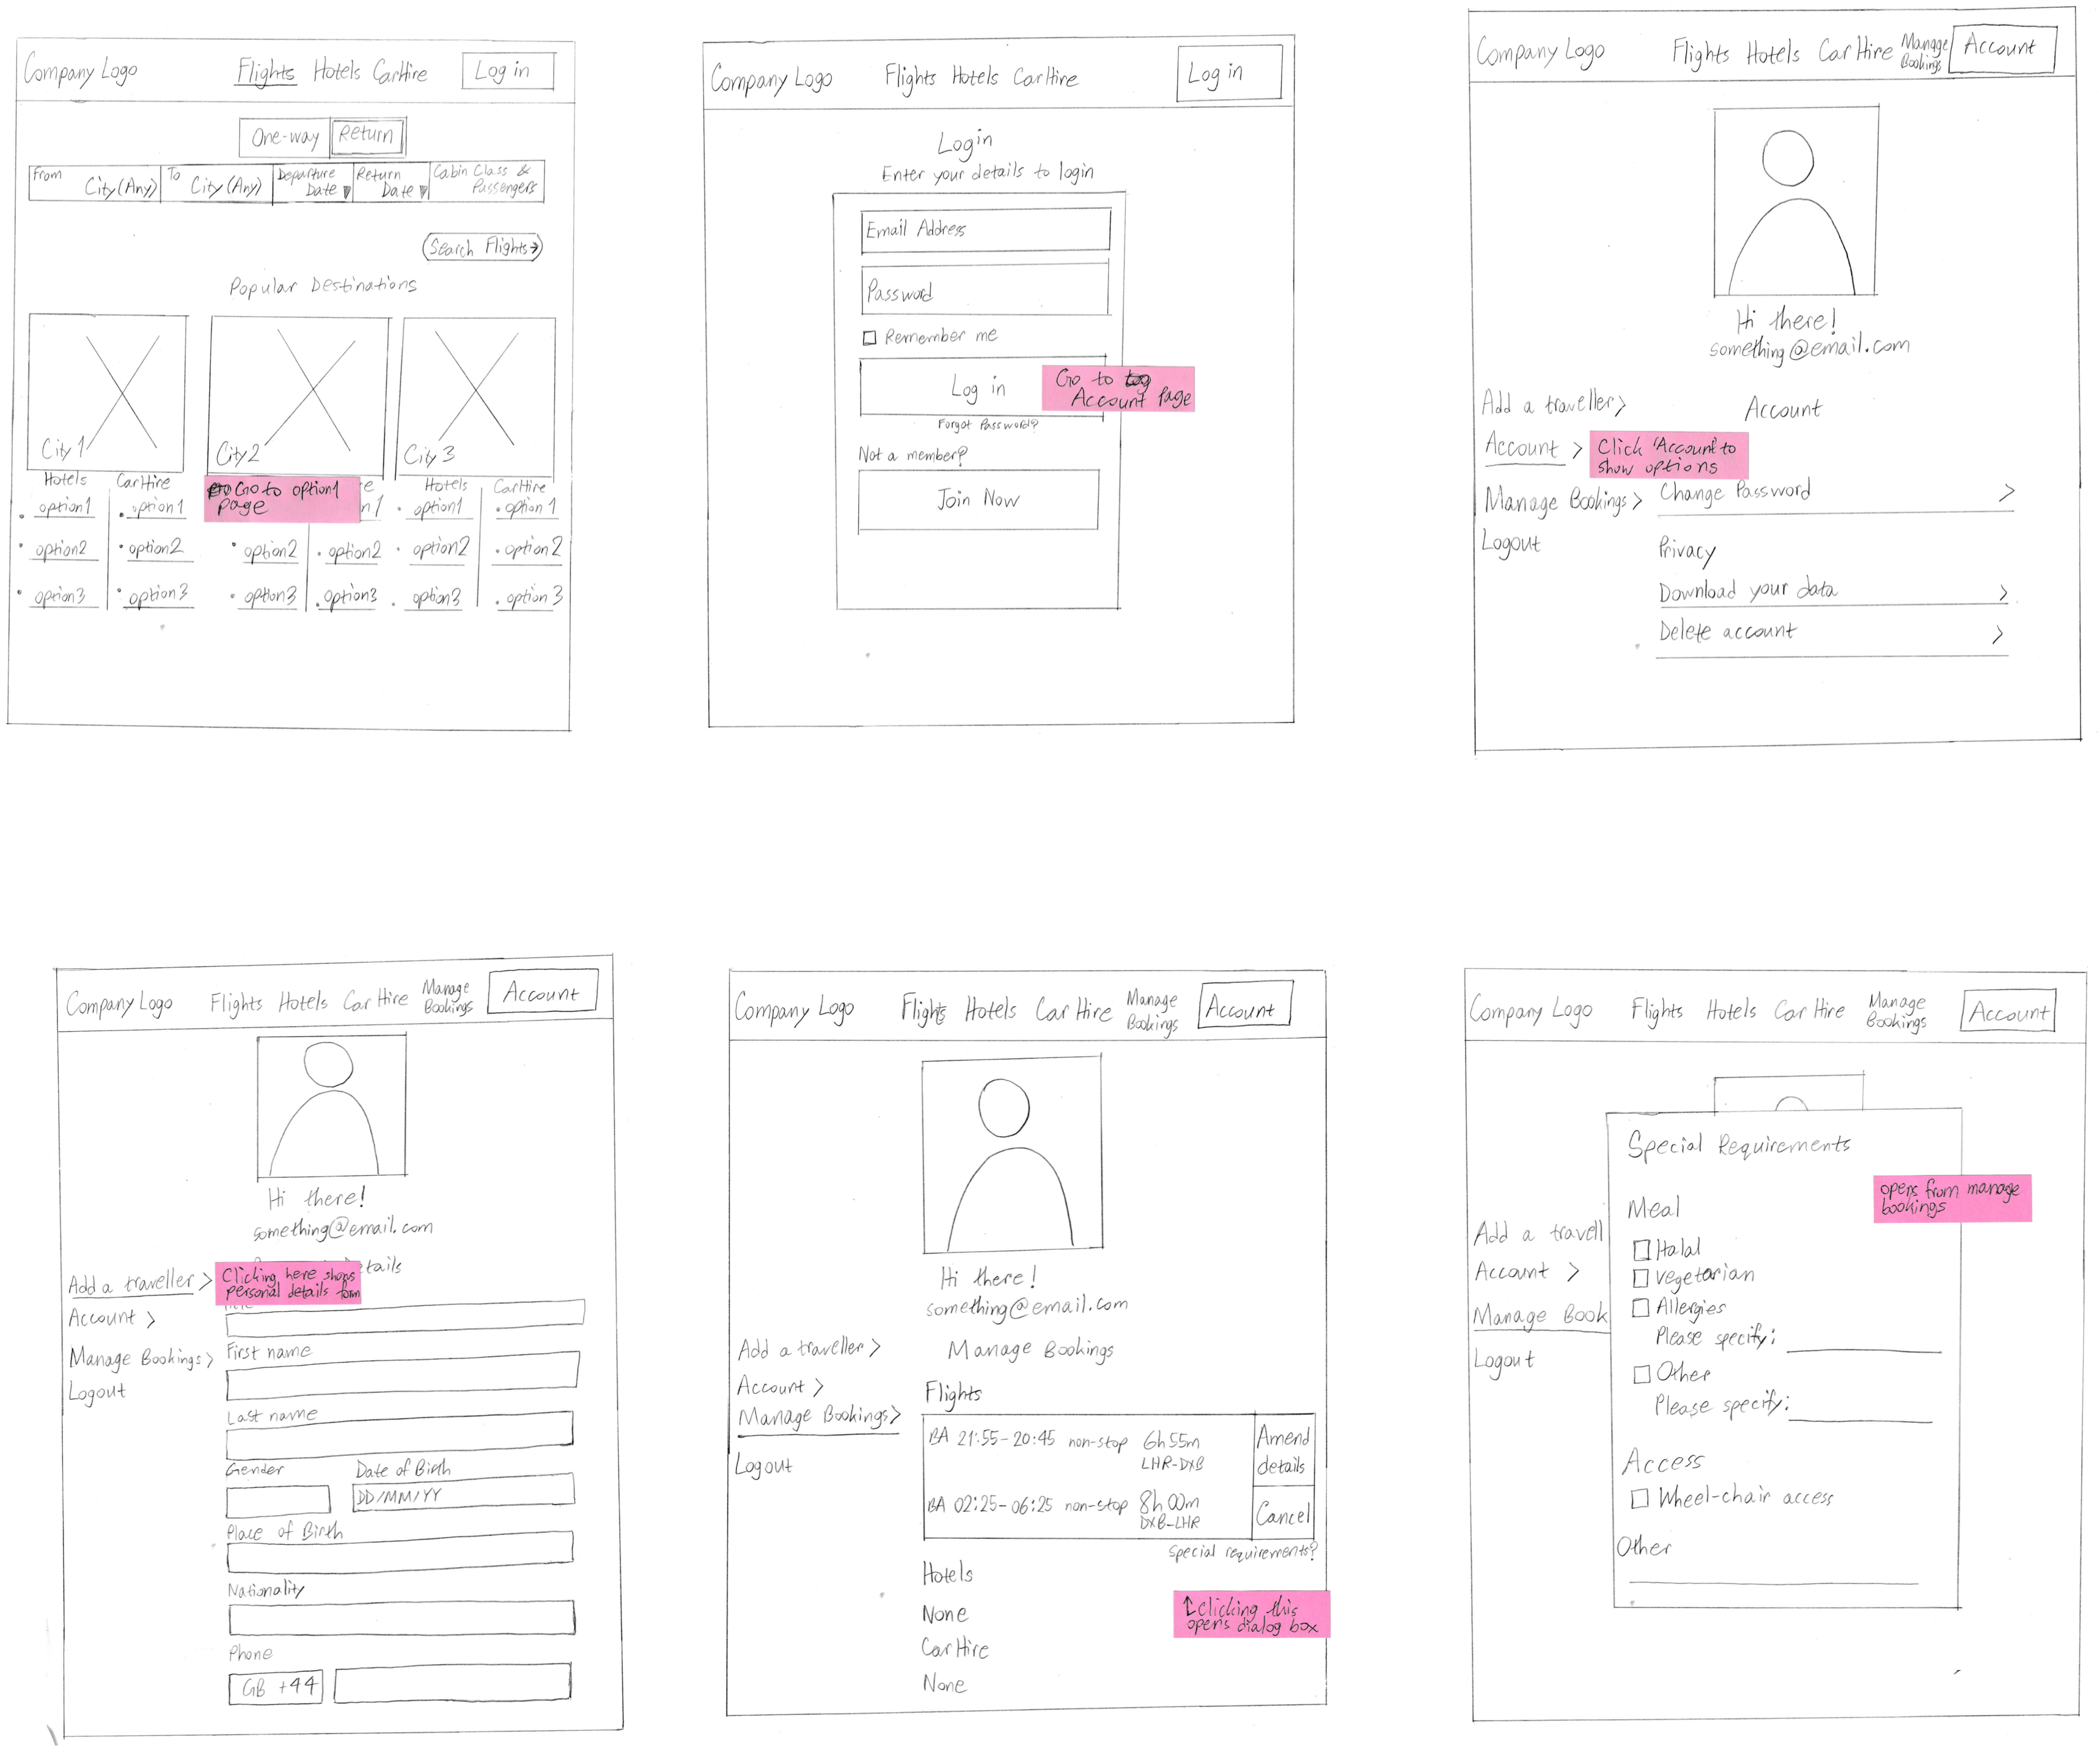 Company Logo Flights Hotels Car Hire Log in
One-way Return
From City (Any) To City (Any) Departure Date Return Date Cabin Class & Passengers
Search Flights →
Popular Destinations
City 1 City 2 City 3
Hotels Car Hire Go to option1 page Hotels Car Hire
• option1 • option1 • option1 • option 1
• option2 • option2 • option2 • option2 • option2 • option 2
• option3 • option3 • option3 • option3 • option3 • option 3
Company Logo Flights Hotels Car Hire Log in
Login
Enter your details to login
Email Address
Password
Remember me
Log in
Go to
Account Page
Forgot Password?
Not a member?
Join Now
Company Logo Flights Hotels Car Hire Manage Bookings Account
Hi there!
something@email.com
Add a traveller >
Account >
Manage Bookings >
Logout
Account
Click 'Account' to
show options
Change Password >
Privacy
Download your data >
Delete account >
Company Logo Flights Hotels Car Hire Manage Bookings Account
Hi there!
something@email.com
Add a traveller >
Account >
Manage Bookings >
Logout
Clicking here shows
personal details form
First name
Last name
Gender Date of Birth
DD/MM/YY
Place of Birth
Nationality
Phone
GB +44
Company Logo Flights Hotels Car Hire Manage Bookings Account
Hi there!
something@email.com
Add a traveller >
Account >
Manage Bookings >
Logout
Manage Bookings
Flights
BA 21:55-20:45 non-stop 6h 55m
LHR-DXB
Amend
details
BA 02:25-06:25 non-stop 8h 00m
DXB-LHR
Cancel
Special requirements?
Hotels
None
↑ clicking this
opens dialog box
Car Hire
None
Company Logo Flights Hotels Car Hire Manage Bookings Account
Add a travell
Account >
Manage Book
Logout
Special Requirements
opens from manage
bookings
Meal
Halal
vegetarian
Allergies
Please specify:
Other
Please specify:
Access
Wheel-chair access
Other